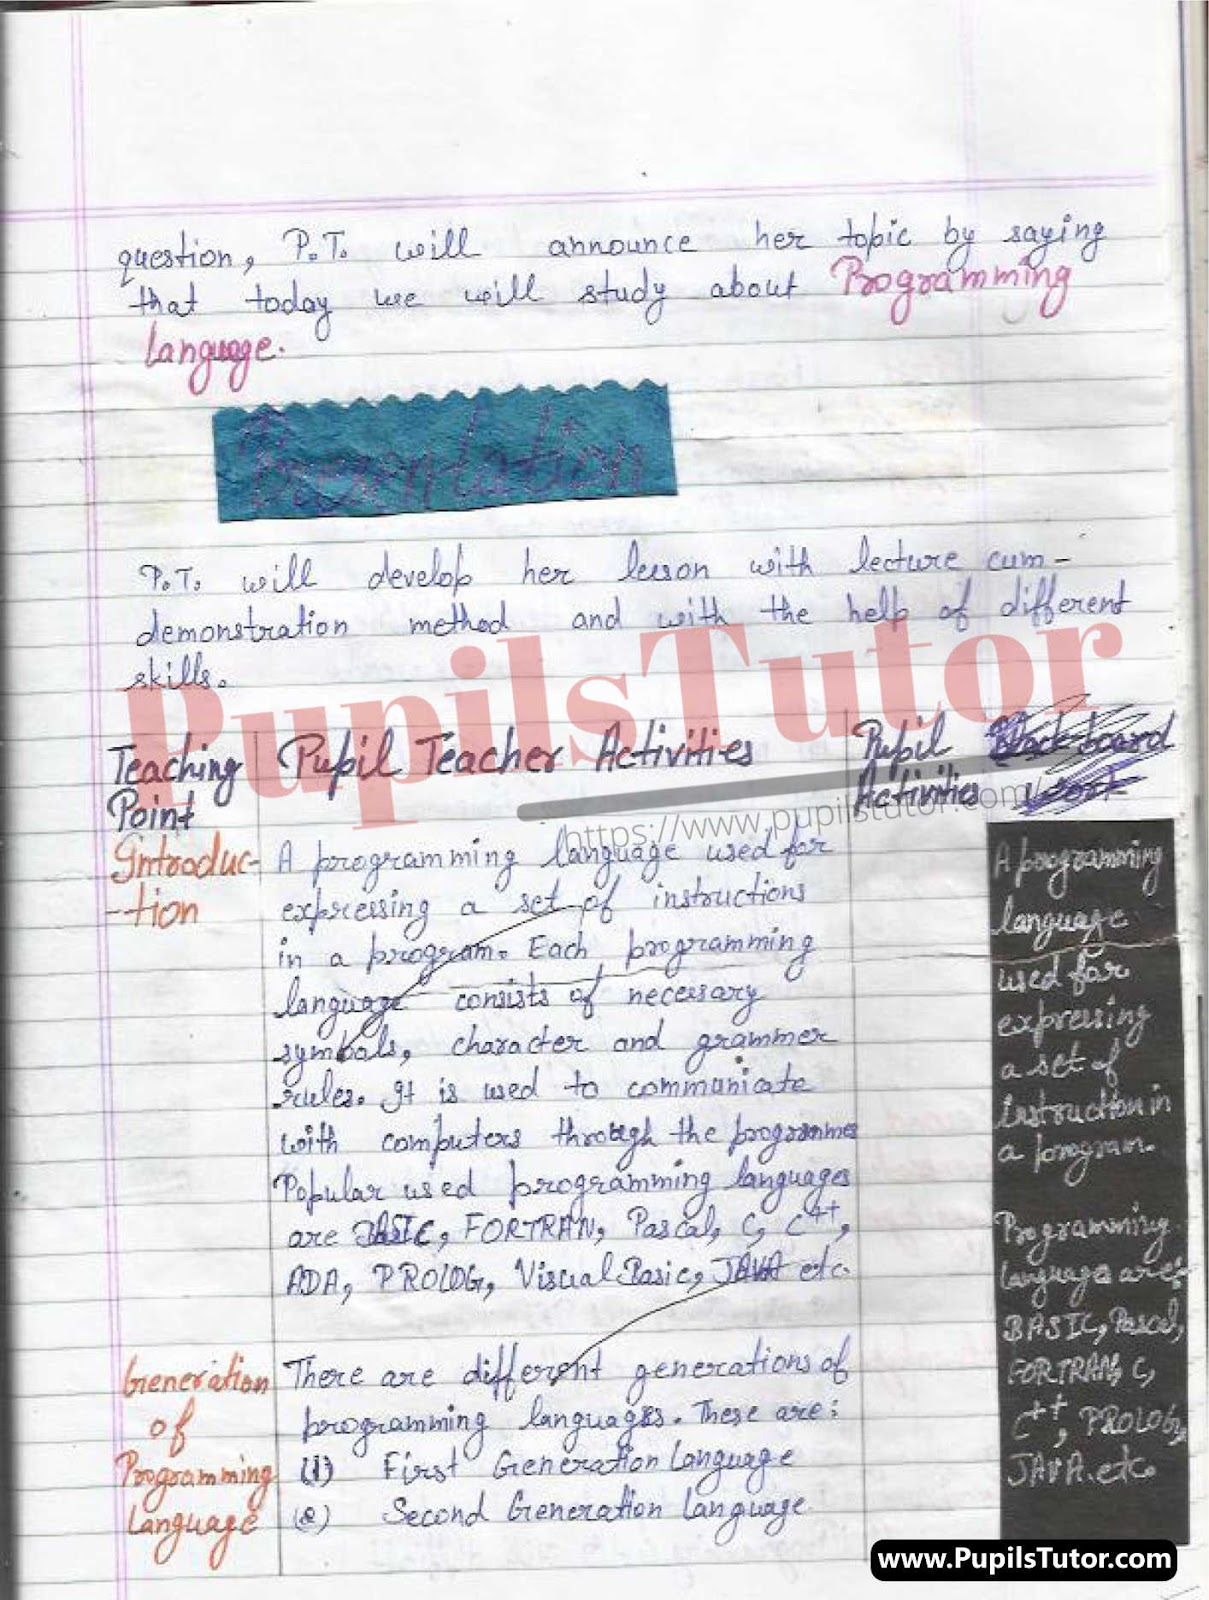 question, P.T. will announce her topic by saying
that today we will study about Programming
Language.
Presentation
P.T. will develop her lesson with lecture cum-
demonstration method and with the help of different
skills.
PupilsTutor
https://www.pupilstutor.com/
Teaching
Point
Pupil Teacher Activities
Pupil
Activities
Black board
work
Introduc-
-tion
A programming language used for
expressing a set of instructions
in a program. Each programming
language consists of necessary
symbols, character and grammer
rules. It is used to communicate
with computers through the programmes
Popular used programming languages
are BASIC, FORTRAN, Pascal, C, C++,
ADA, PROLOG, Visual Basic, JAVA etc.
Generation
of
Programming
Language
There are different generations of
programming languages. These are:
(1) First Generation Language
(2) Second Generation Language
A programming
language
used for
expressing
a set of
instruction in
a program.
Programming
languages are:
BASIC, Pascal,
FORTRAN, C,
C++, PROLOG,
JAVA. etc.
www.PupilsTutor.com